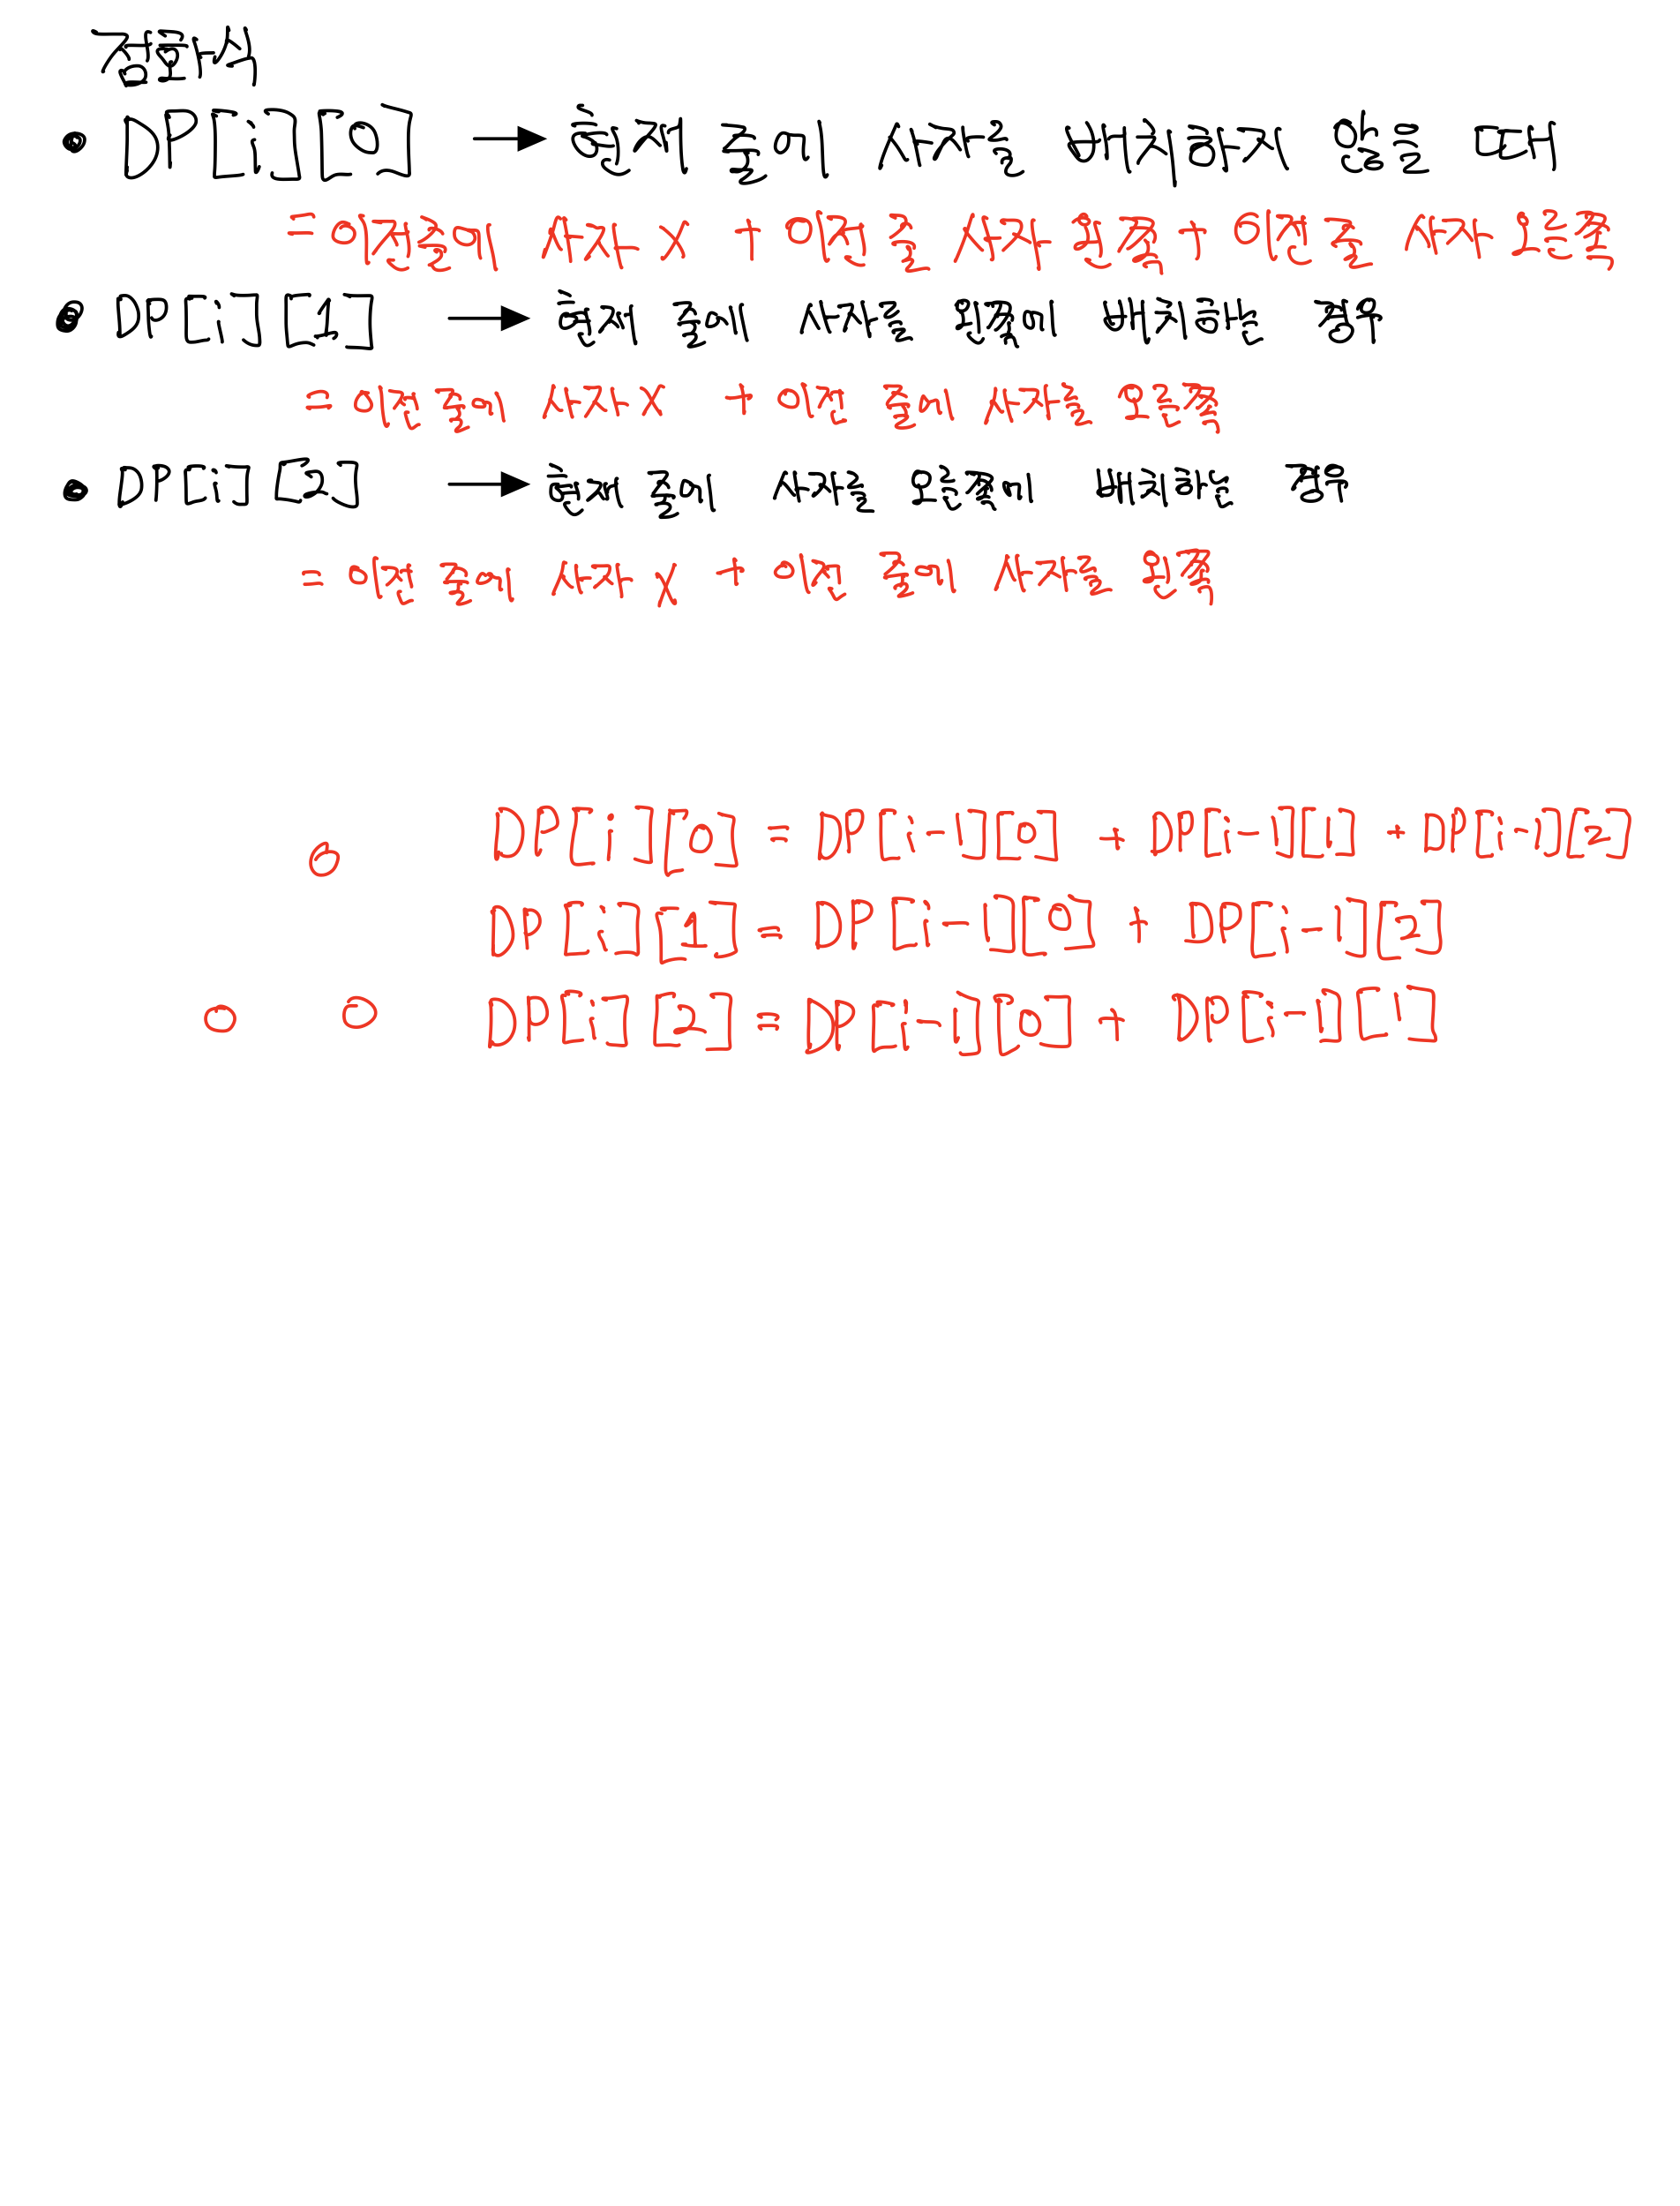 점화식
• DP[i][0] → 현재 줄에 사자를 배치하지 않을 때
= 이전줄에 사자 X + 이전 줄 사자 왼쪽 + 이전 줄 사자 오른쪽
• DP[i][1] → 현재 줄에 사자를 왼쪽에 배치하는 경우
= 이전 줄에 사자X + 이전 줄에 사자를 오른쪽
• DP[i][2] → 현재 줄에 사자를 오른쪽에 배치하는 경우
= 이전 줄에 사자 X + 이전 줄에 사자를 왼쪽
DP[i][0] = DP[i-1][0] + DP[i-1][1] + DP[i-1][2]
DP[i][1] = DP[i-1][0] + DP[i-1][2]
DP[i][2] = DP[i-1][0] + DP[i-1][1]